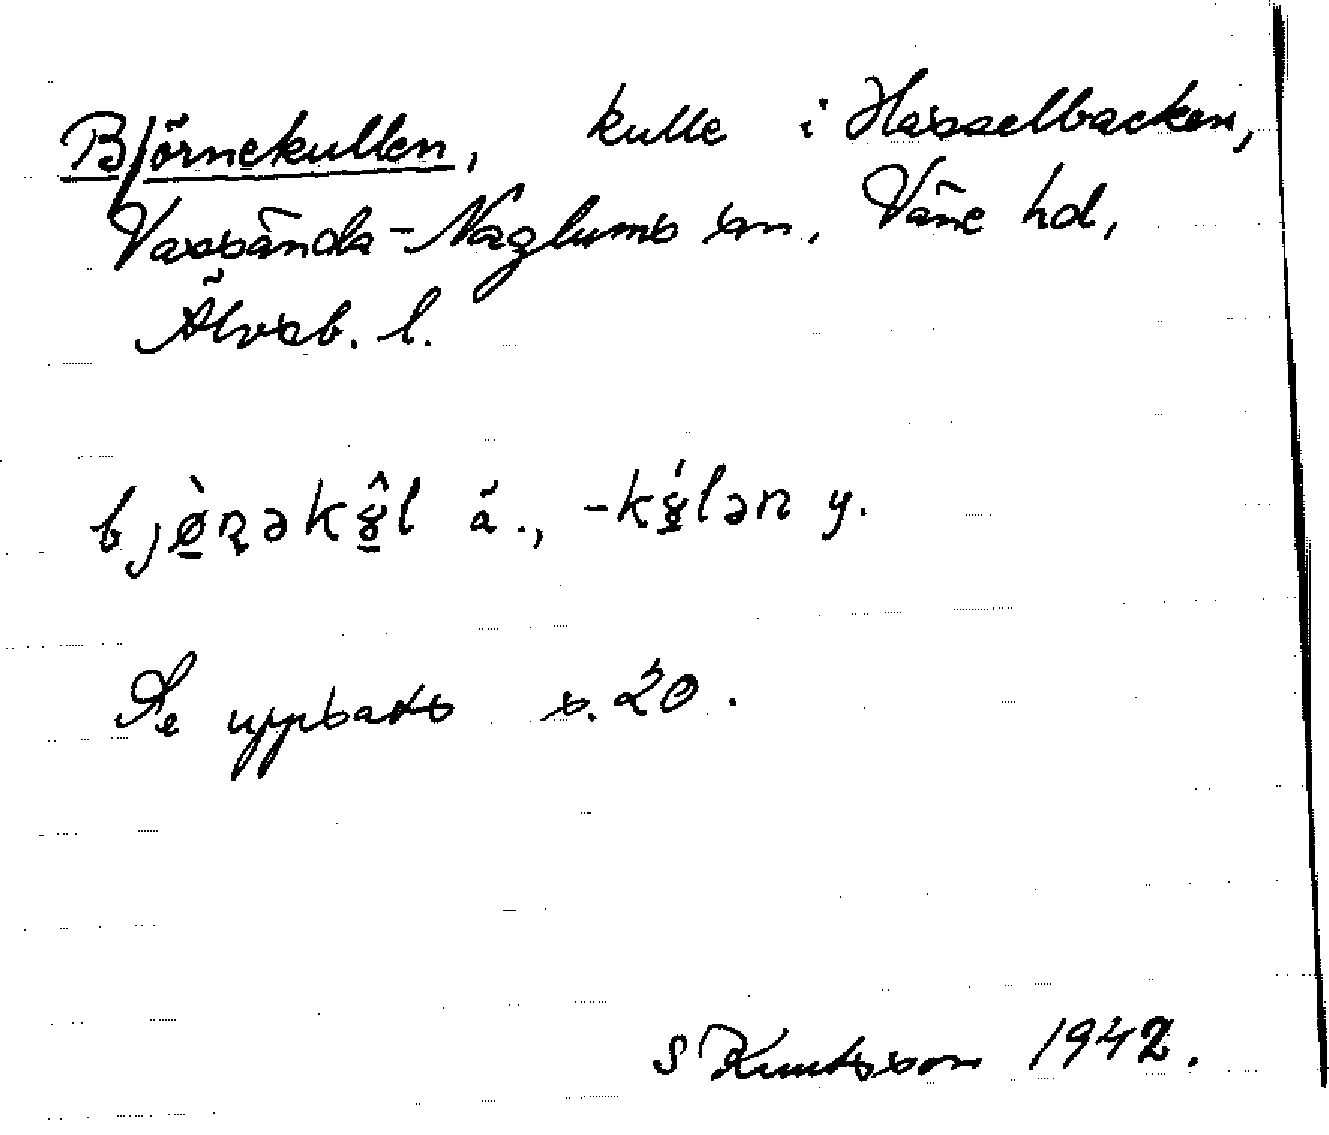 Björnekullen, kulle i Hasselbacken,
Vassända-Naglums sn, Väne hd,
Älvsb. l.
bjø̠̀ɳəkȣ̠̂l ä., -kȣ̠́lən y.
Se uppsats s. 20.
S Knutsson 1942.